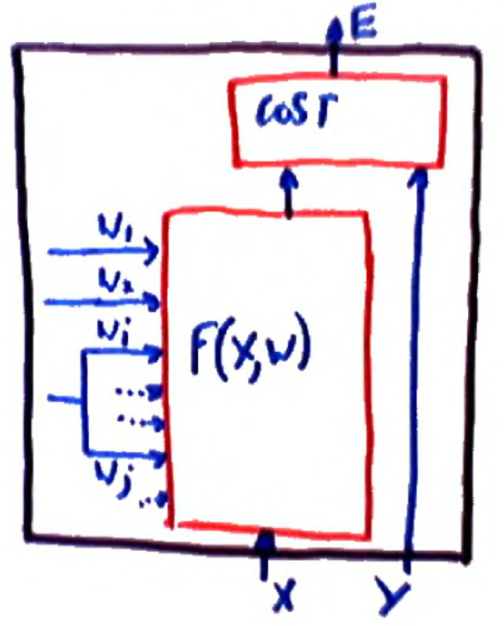 E
COST
W1
W2
Wi
F(X,W)
Wj
X
Y